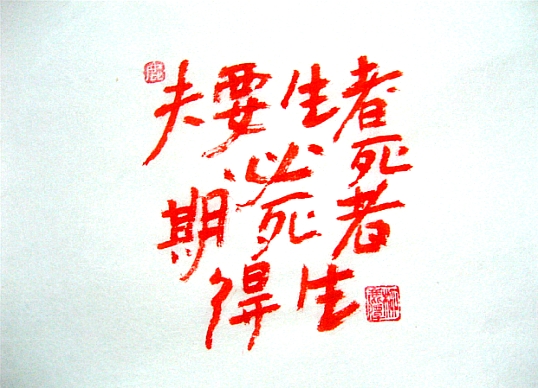 夫要生者
必死
期死者
得生